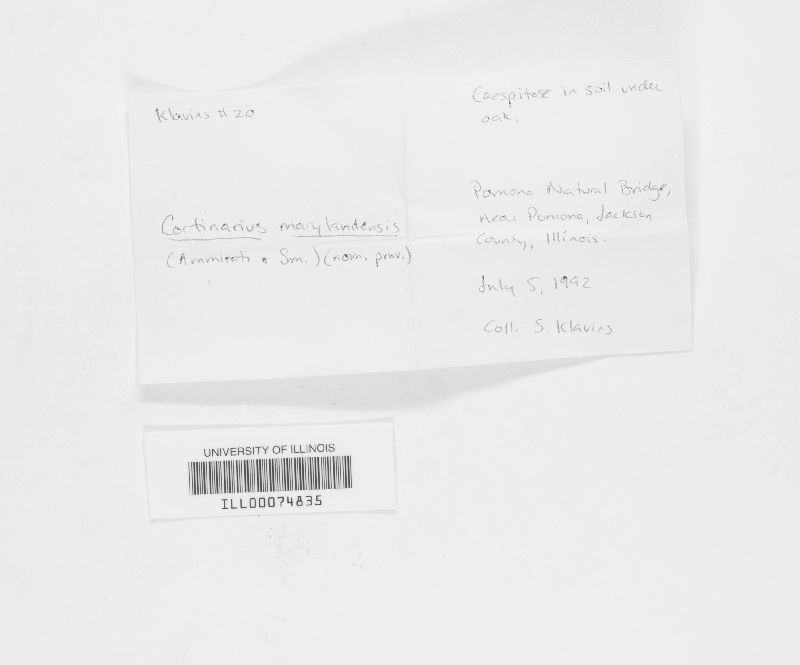 Klavins # 20
Cortinarius marylandensis
(Ammirati & Sm.) (nom. prov.)
Caespitose in soil under
oak.
Pomona Natural Bridge,
near Pomona, Jackson
County, Illinois.
July 5, 1992
Coll. S. Klavins
UNIVERSITY OF ILLINOIS
ILL00074835